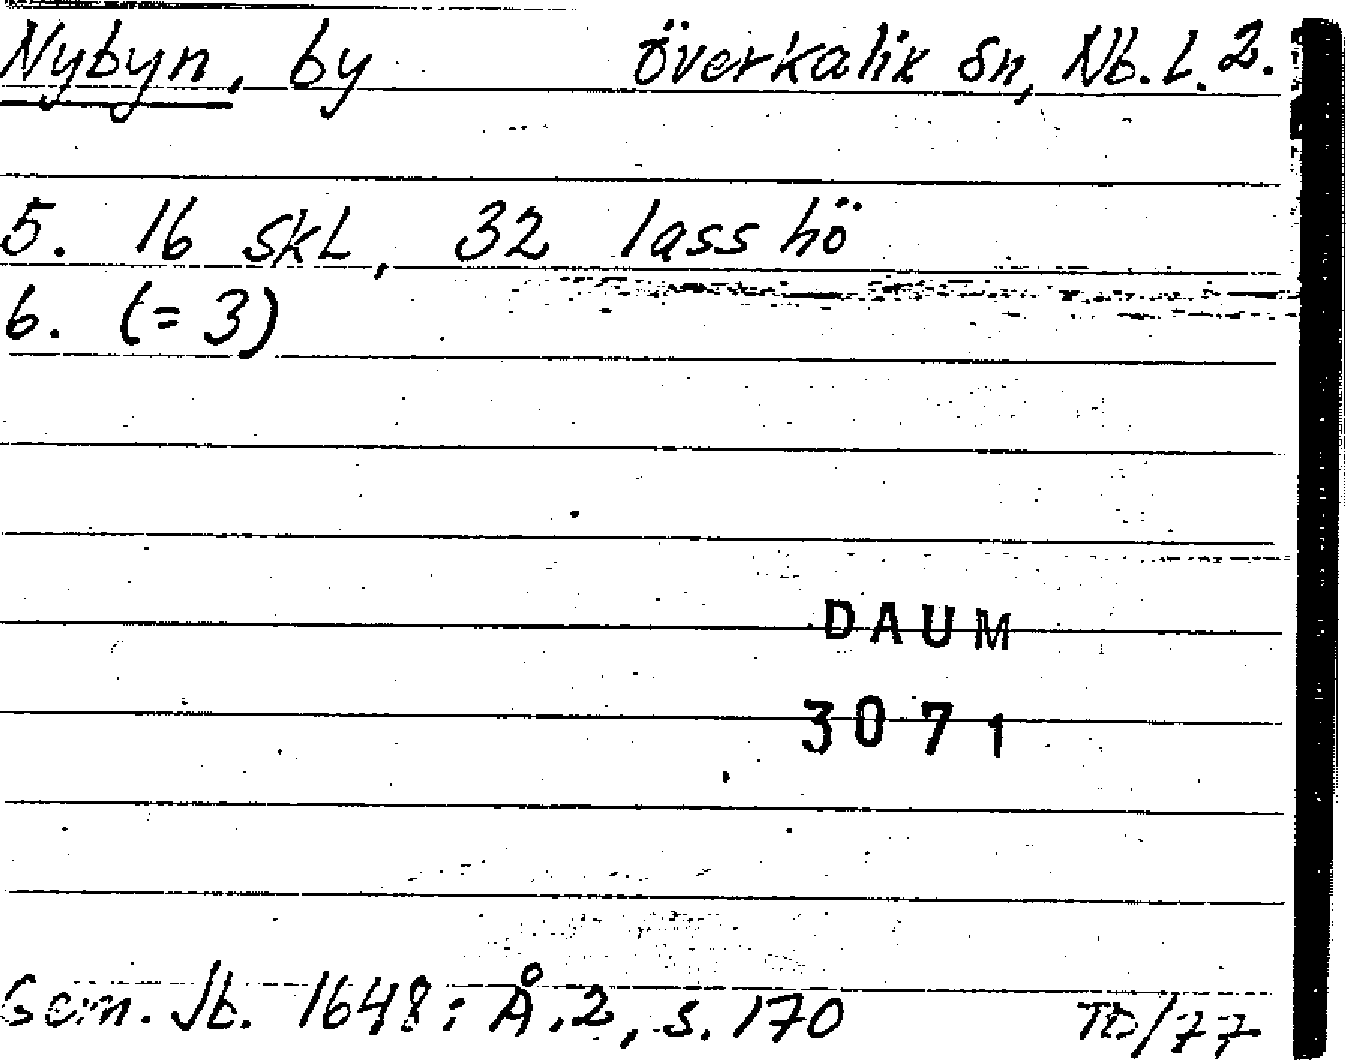 Nybyn, by Överkalix sn, Nb. L. 2.
5. 16 skl, 32 lass hö
6. (= 3)
DAUM
3071
Gem. Jb. 1648: Å.2, s. 170 TD/77